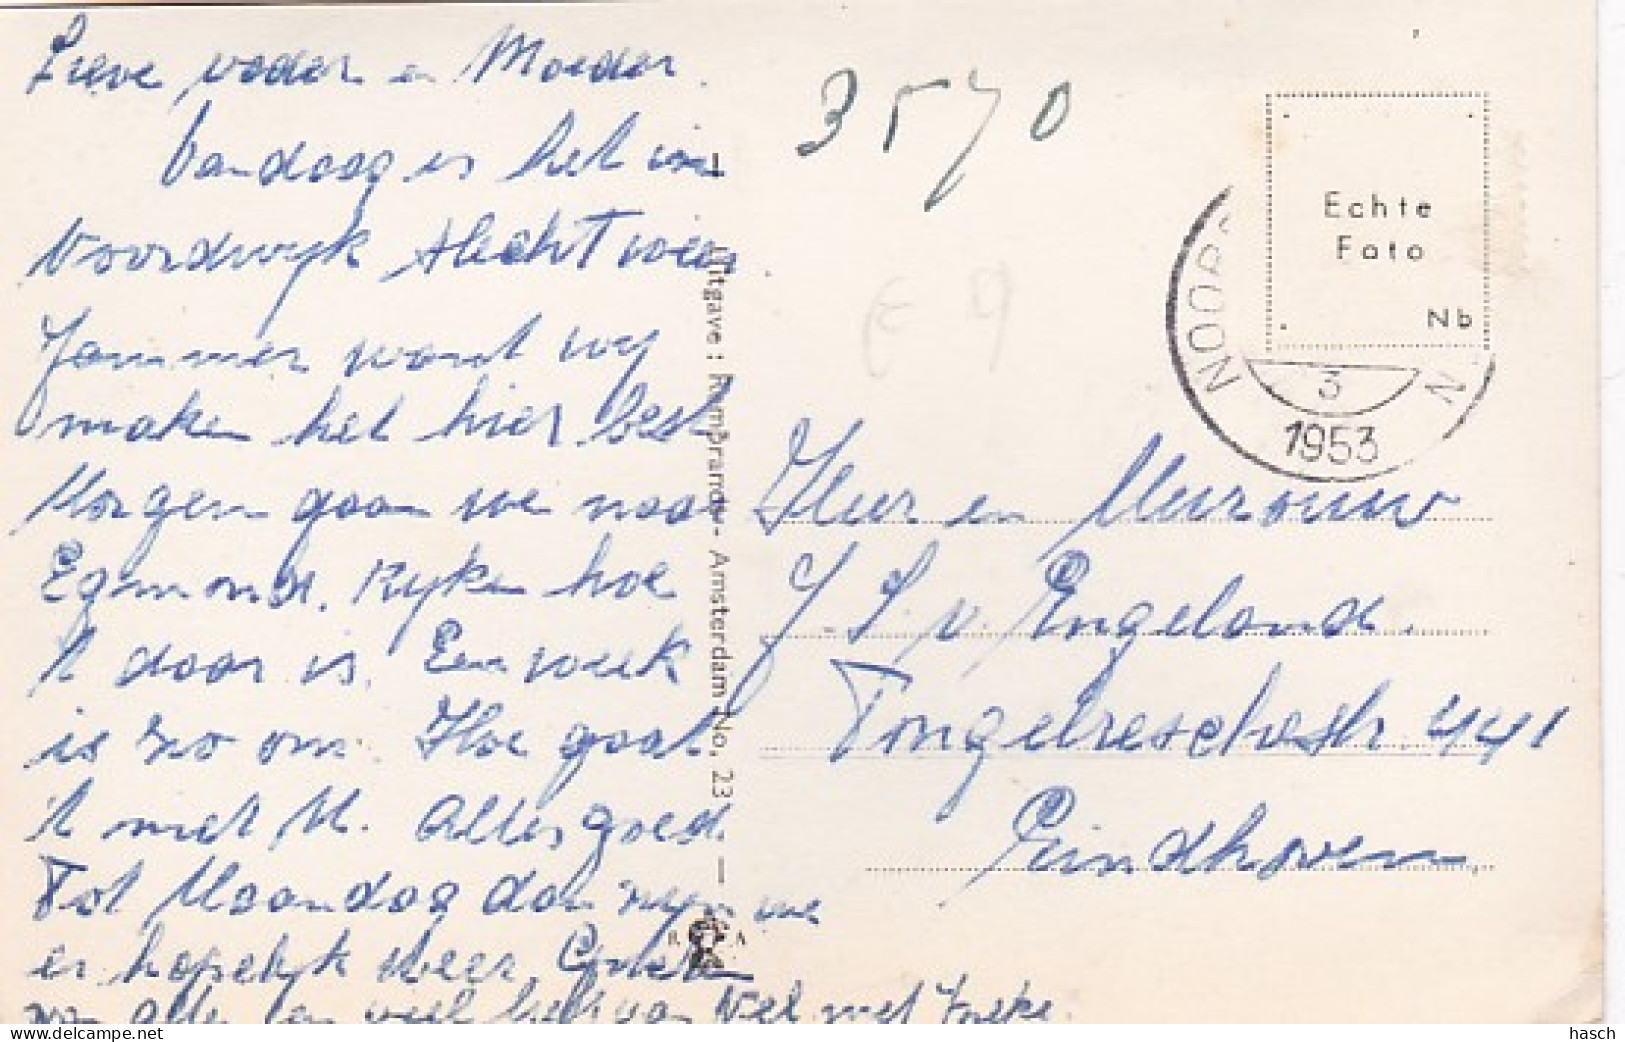 Lieve vader en Moeder.
Vandaag is het in
Noordwyk slecht weer
Jammer want wy
maken het hier best
Morgen gaan we naar
Egmond. Kyken hoe
't daar is. Een week
is zo om. Hoe gaat
't met U. Alles goed.
Tot Maandag dan zyn we
er hopelyk weer. Groeten
van allen en veel liefs van Nel met Joeke.
Uitgave: Rembrandt - Amsterdam No. 23
R A
3570
E 9
Echte
Foto
Nb
NOOR N
3
1953
Heer en Mevrouw
J. S. v. Engeland.
Tongelreschestr. 441
Eindhoven.
hasch